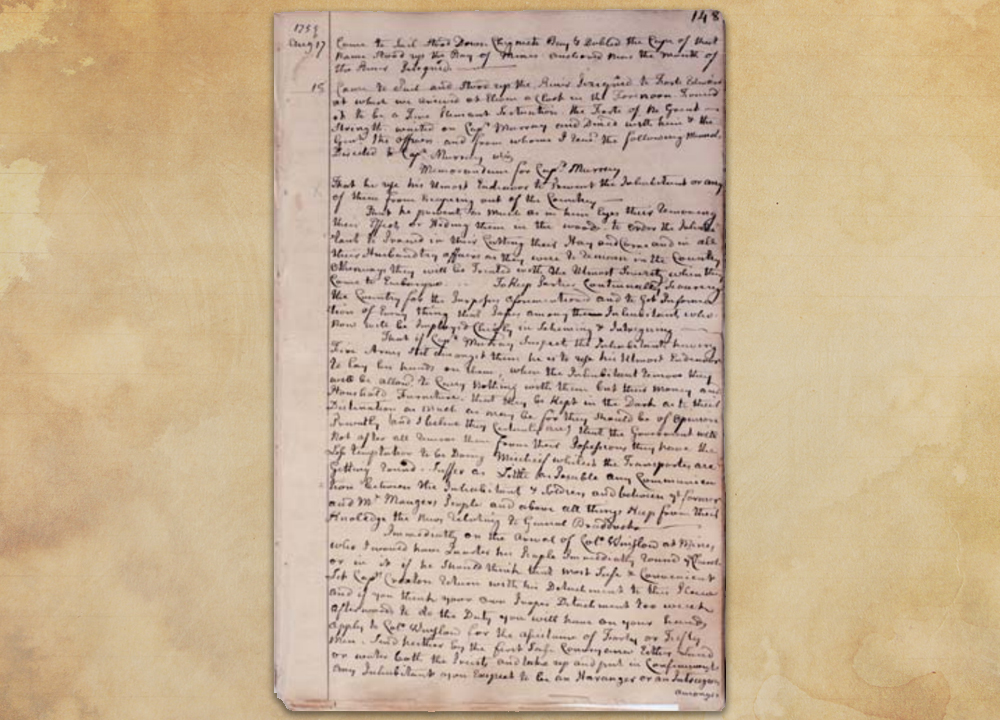 148
1755
Aug 17 Came to Sail Stood Down Chignecto Bay & Dobled the Cape of that
Name Stood up the Bay of Mines anchored near the mouth of
the River
18 Came to Sail and Stood up the River to Forte Edward
at which we arived at Eleven a Clock in the Forenoon Found
it to be a Fine Pleasant Scituation, the Forte of No Great
Strength. waited on Capt. Murray and Dined with him & the
Officers and from whome I the following
Directed to Capt. Murray viz
Memorandum for Capt. Murray
That he use his Utmost Endeavor to Prevent the Inhabitants or any
of them from out of the Country
That he prevent as much as in him Lyes their Removing
their Effects or Hiding them in the woods. to Order the
to Proceed in their Cutting their Hay and Corne and in all
their Husbandry affairs as they were to Remain in the Country
Otherways they will be Treated with the Utmost Severity when they
Come to Embarque To Keep Parties Continually Scouring
the Country for the Purposes aforementioned and to Get Informa
tion of Every thing that Passes among the Inhabitants who
Now will be Imployed Chiefly in Scheming & Intriguing
That if Capt. Murray Suspects the Inhabitants having
Fire Arms Still amongst them he is to use his Utmost Endeavor
To lay his hands on them, when the Inhabitants Remove they
will be allowd. to Carry Nothing with them but their Money and
Household Furniture. that they be Kept in the Dark as to their
Destination as Much as may be for they should be of Opinion
Presently (and I believe they Certainly are) that the Goverment will
Not after all Remove them from their Possessions they have the
Less Temptation to be Doing Mischief whilest the Transportes are
Getting Round. Suffer as Little as Possible any Communica
tion between the Inhabitants & Soldiers and between ye former
and Mr. Maugers People and above all things Keep from their
Knoledge the News Relating to General Braddocke
Immediately on the Arival of Colo. Winslow at Mines,
who I would have Quarter his People Immediately Round ye Church
or in it if he Should think that most Safe & Convenient
Let Capt. Croxton Return with his Detachment to this Place
and if you think your own Proper Detachment Too weak
afterwards to do the Duty you will have on your hands
Apply to Colo. Winslow for the asistance of Forty or Fifty
Men. Send hether by the first Safe Conveyance Either Land
or water both the Priests and take up and put in Confinement
any Inhabitant you Suspect to be an Haranger or an Intreguer
amongst